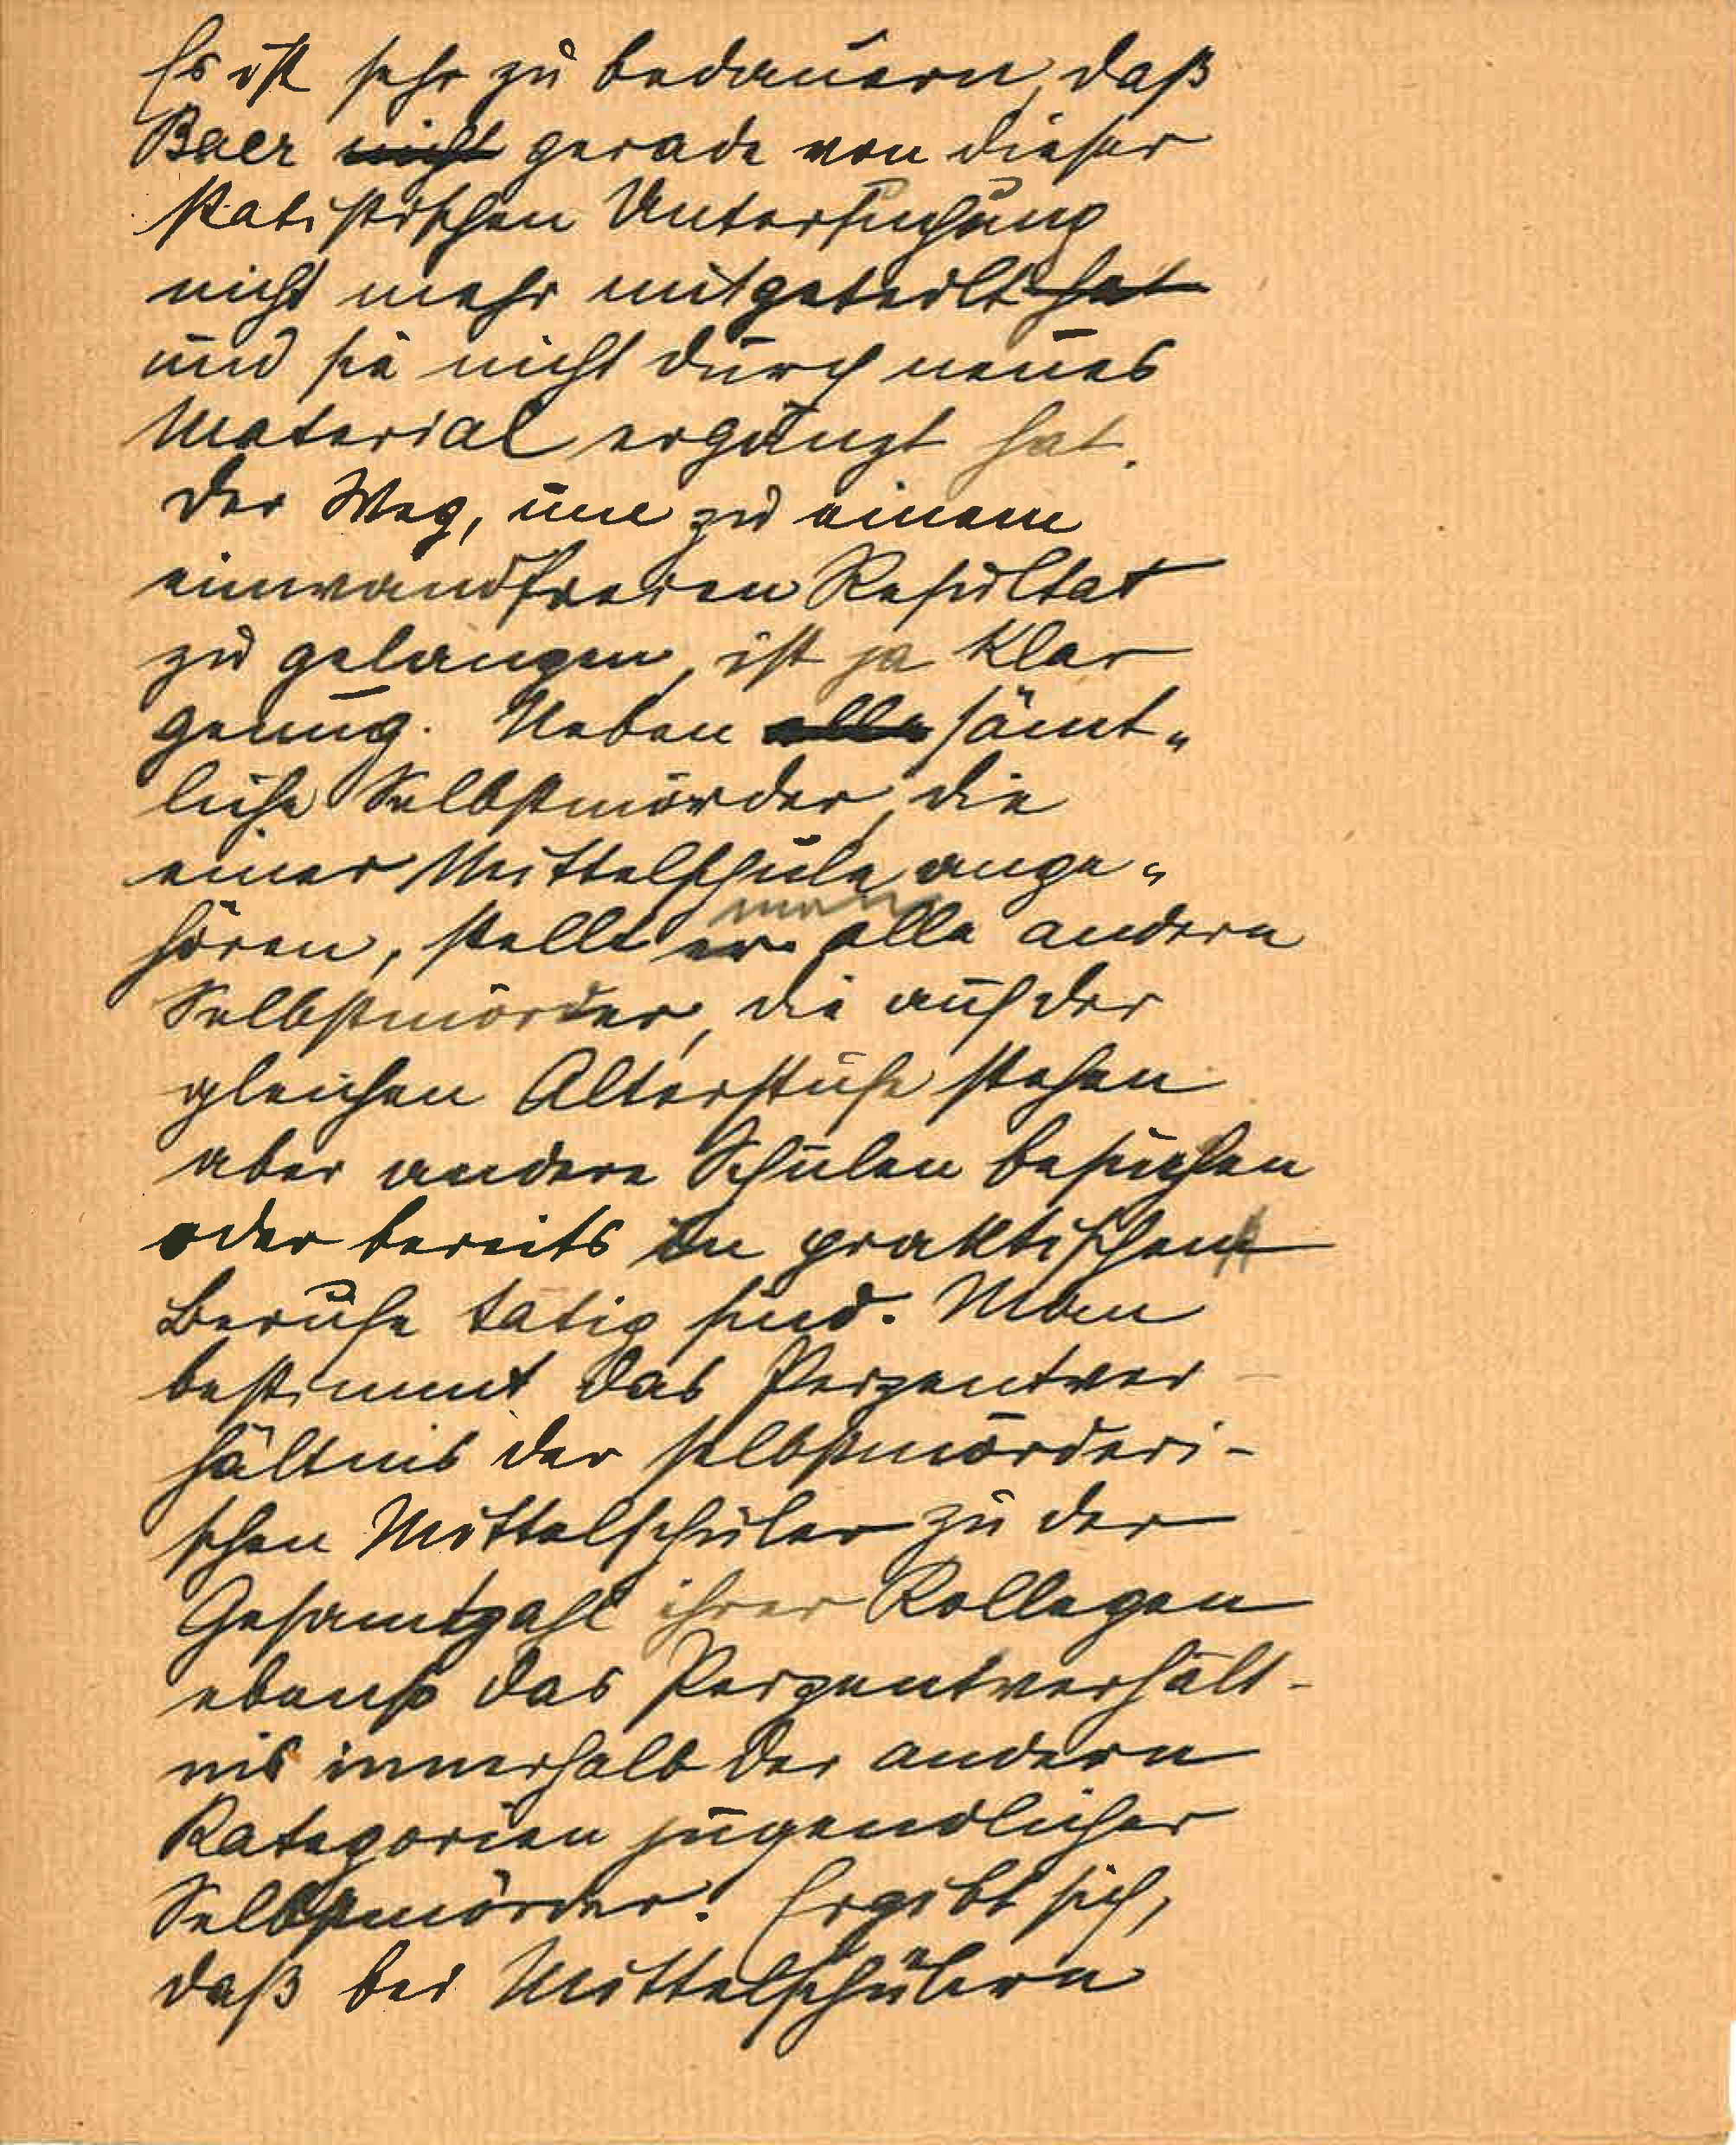 Es ist sehr zu bedauern, daß
Baer nicht gerade von dieser
statistischen Untersuchung
nicht mehr mitgeteilt hat
und sie nicht durch neues
Material ergänzt hat.
Der Weg, um zu einem
einwandfreien Resultat
zu gelangen, ist ja klar
genug. Neben alle sämt„
liche Selbstmörder, die
einer Mittelschule ange„
man
hören, stellt er alle andern
Selbstmörder, die auf der
gleichen Altersstufe stehen
aber andere Schulen besuchen
oder bereits in praktischen
Berufe tätig sind. Man
bestimmt das Perzentver-
hältnis der selbstmörderi-
schen Mittelschüler zu der
Gesamtzahl ihrer Kollegen
ebenso das Perzentverhält-
nis innerhalb der andern
Kategorien jugendlicher
Selbstmörder. Ergibt sich,
daß bei Mittelschülern